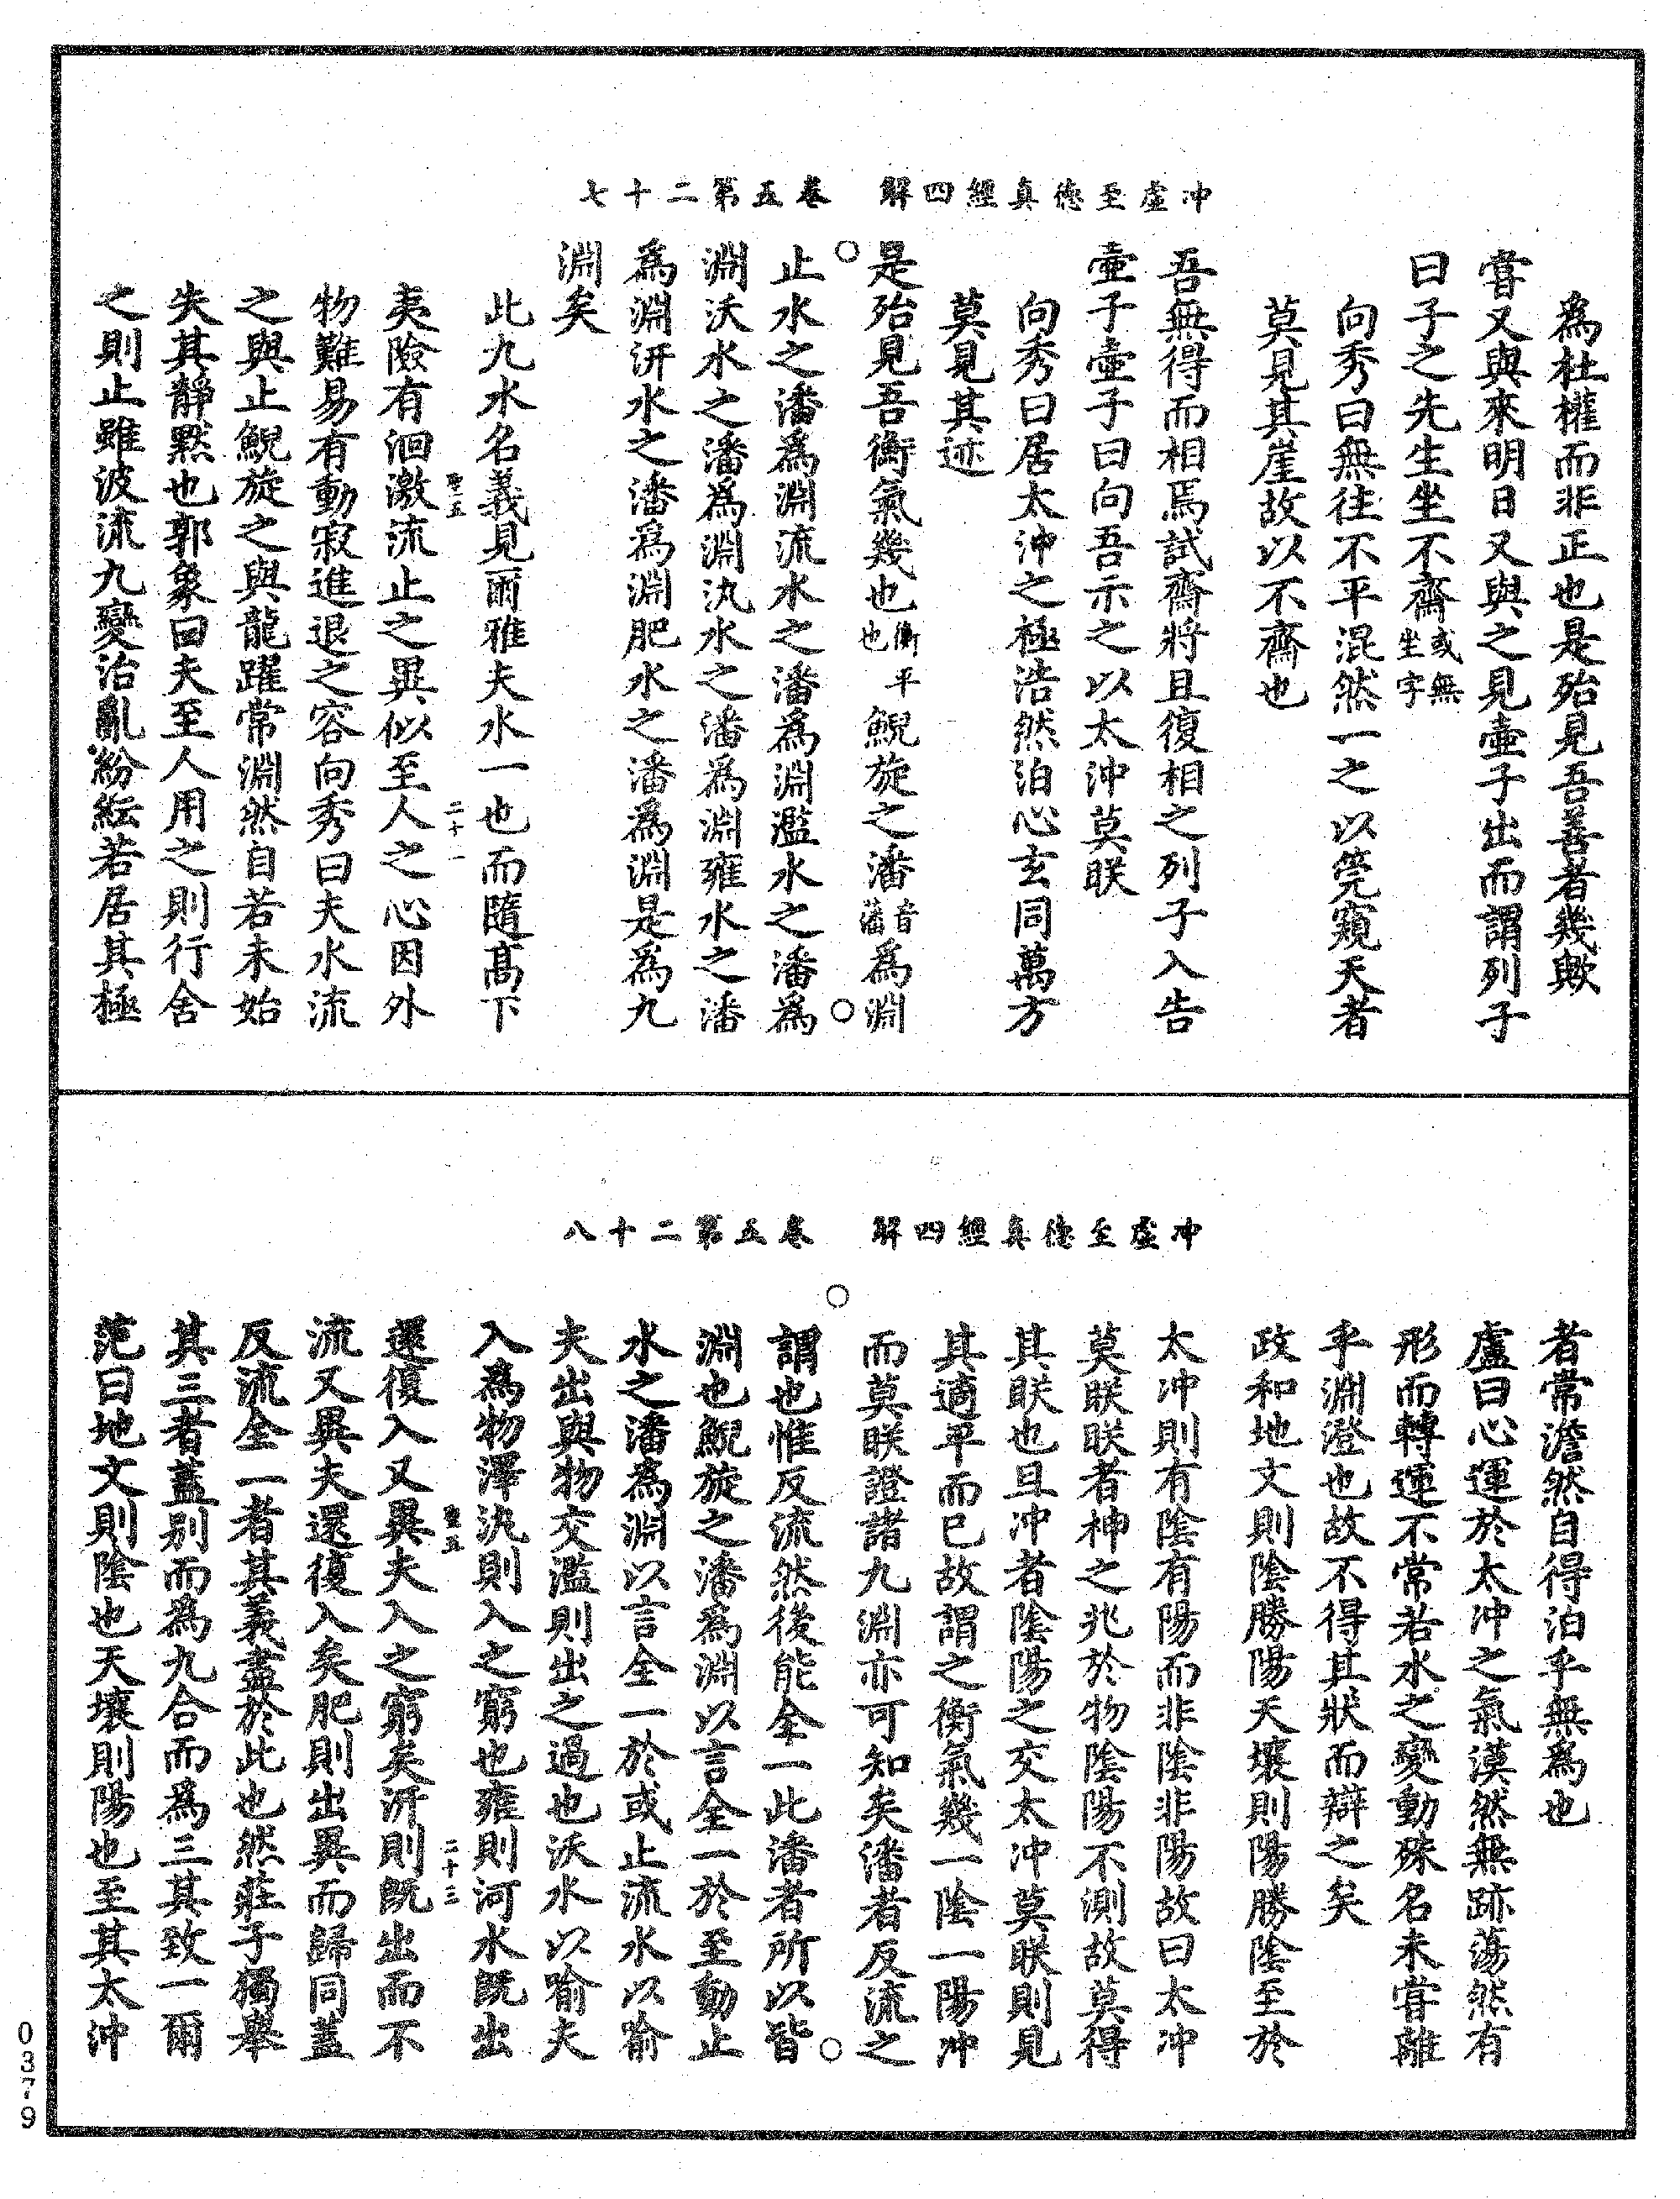 冲虛至德真經四解　卷五第二十七
為杜權而非正也是殆見吾善者幾歟
嘗又與來明日又與之見壺子出而謂列子
曰子之先生坐不齋或無坐字
向秀曰無往不平混然一之以筦窺天者
莫見其崖故以不齋也
吾無得而相焉試齋將且復相之列子入告
壺子壺子曰向吾示之以太沖莫眹
向秀曰居太沖之極浩然泊心玄同萬方
莫見其迹
是殆見吾衡氣幾也衡平也鯢旋之潘音藩為淵
止水之潘為淵流水之潘為淵濫水之潘為
淵沃水之潘為淵氿水之潘為淵雍水之潘
為淵汧水之潘為淵肥水之潘為淵是為九
淵矣
此九水名義見爾雅夫水一也而隨高下
聖五　二十一
夷險有洄激流止之異似至人之心因外
物難易有動寂進退之容向秀曰夫水流
之與止鯢旋之與龍躍常淵然自若未始
失其靜默也郭象曰夫至人用之則行舍
之則止雖波流九變治亂紛紜若居其極
冲虛至德真經四解　卷五第二十八
者常澹然自得泊乎無為也
盧曰心運於太冲之氣漠然無跡蕩然有
形而轉運不常若水之變動殊名未嘗離
乎淵澄也故不得其狀而辯之矣
政和地文則陰勝陽天壤則陽勝陰至於
太冲則有陰有陽而非陰非陽故曰太冲
莫眹眹者神之兆於物陰陽不測故莫得
其眹也且冲者陰陽之交太冲莫眹則見
其適平而已故謂之衡氣幾一陰一陽冲
而莫眹證諸九淵亦可知矣潘者反流之
謂也惟反流然後能全一此潘者所以皆
淵也鯢旋之潘為淵以言全一於至動止
水之潘為淵以言全一於或止流水以喻
夫出與物交濫則出之過也沃水以喻夫
入為物澤氿則入之窮也雍則河水既出
聖五　二十三
還復入又異夫入之窮矣汧則既出而不
流又異夫還復入矣肥則出異而歸同蓋
反流全一者其義盡於此也然莊子獨舉
其三者蓋別而為九合而為三其致一爾
范曰地文則陰也天壤則陽也至其太沖
0379